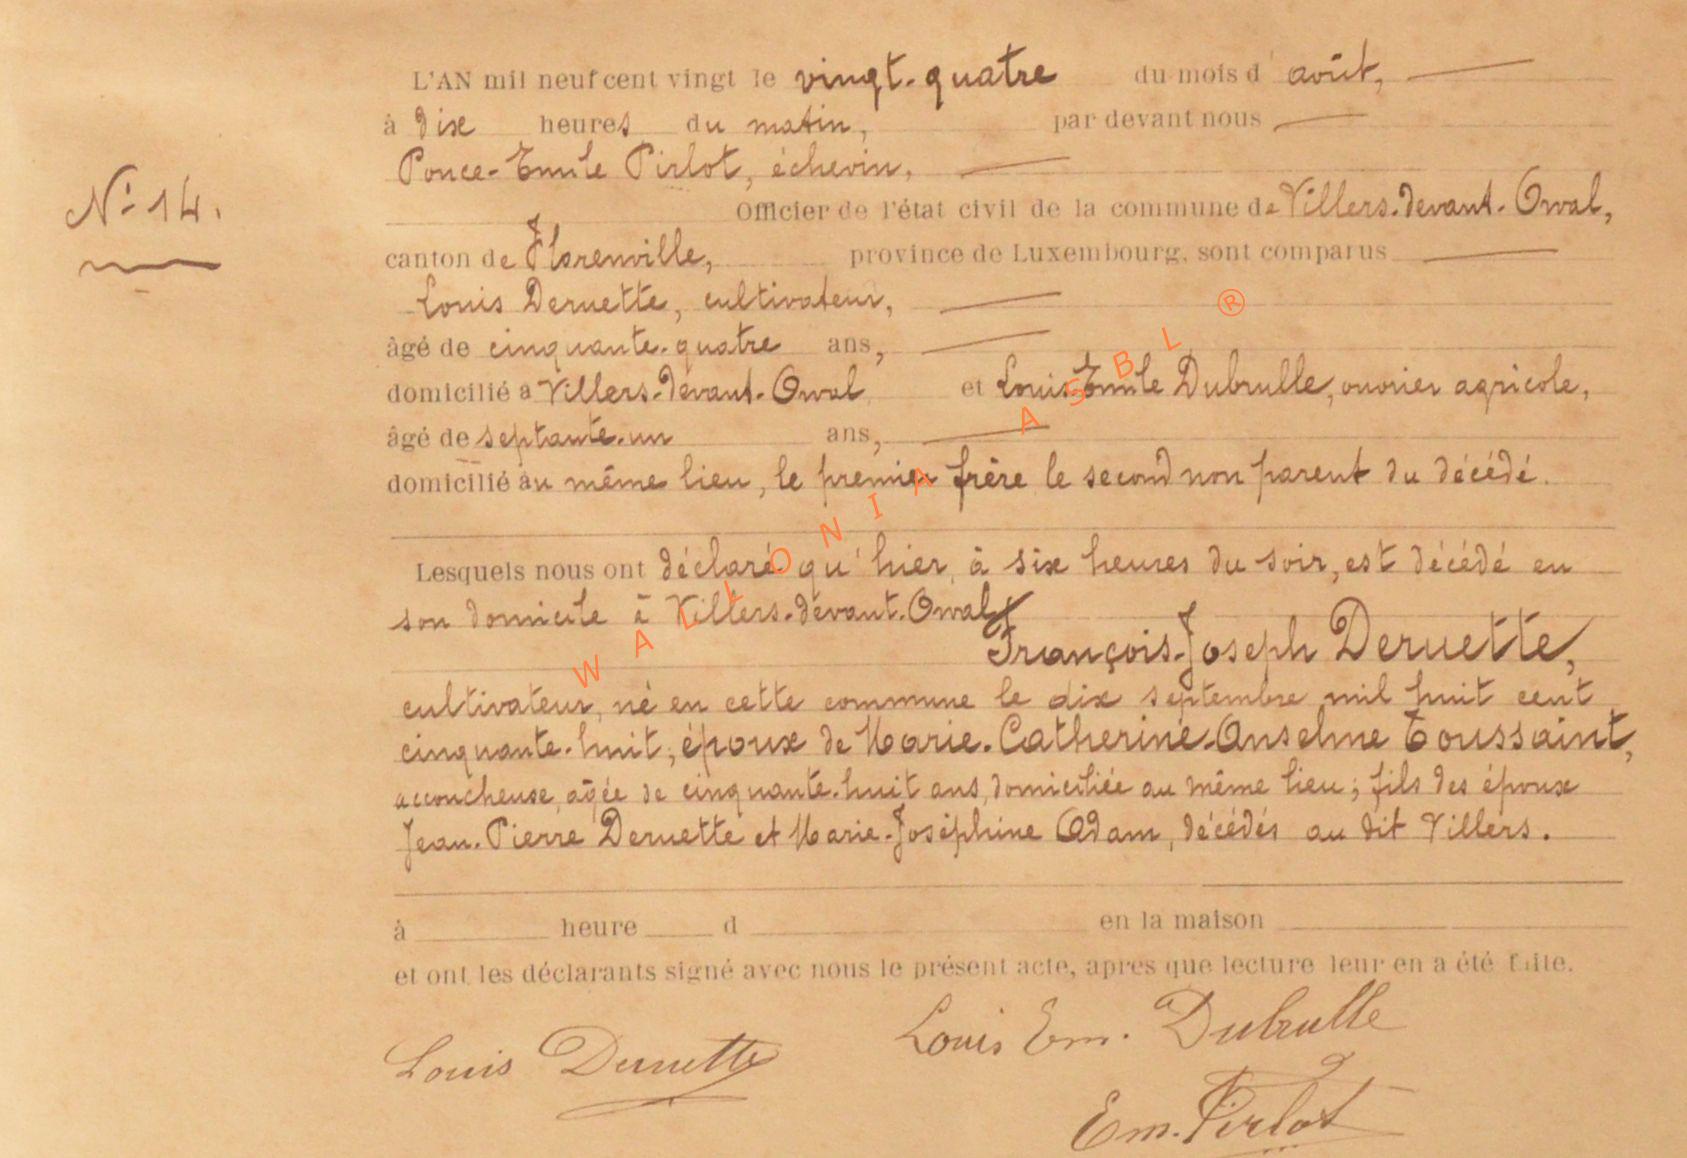 L'AN mil neuf cent vingt le vingt-quatre du mois d'août,
à dix heures du matin, par devant nous
Ponce-Emile Pirlot, échevin,
N° 14.
Officier de l'état civil de la commune de Villers-devant-Orval,
canton de Florenville, province de Luxembourg, sont comparus
Louis Deruette, cultivateur,
âgé de cinquante-quatre ans,
domicilié à Villers-devant-Orval et Louis-Emile Dubrulle, ouvrier agricole,
âgé de septante-un ans,
domicilié au même lieu, le premier frère le second non parent du décédé.
Lesquels nous ont déclaré qu'hier, à six heures du soir, est décédé en
son domicile à Villers-devant-Orval
François-Joseph Deruette,
cultivateur, né en cette commune le dix septembre mil huit cent
cinquante-huit, époux de Marie-Catherine-Anselme Toussaint,
accoucheuse, âgée de cinquante-huit ans, domiciliée au même lieu; fils des époux
Jean-Pierre Deruette et Marie-Joséphine Adam, décédés au dit Villers.
à heure d en la maison
et ont les déclarants signé avec nous le présent acte, apres que lecture leur en a été faite.
Louis Em. Dubrulle
Louis Deruette
Em. Pirlot
WALLONIA ASBL ®